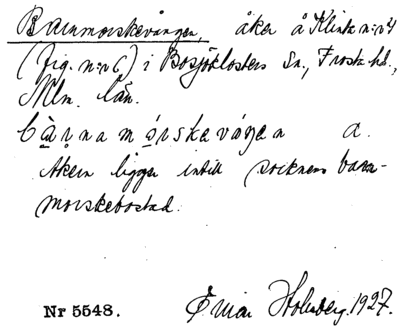 Barnmorskevången, åker å Klinta n:r 4
(fig. n:r 6) i Bosjöklosters Sn., Frosta hd.,
Mlm. län.
bàṛnamǫ́rskavåŋen a.
Åkern ligger intill socknens barn-
morskebostad.
Einar Holmberg. 1927.
Nr 5548.